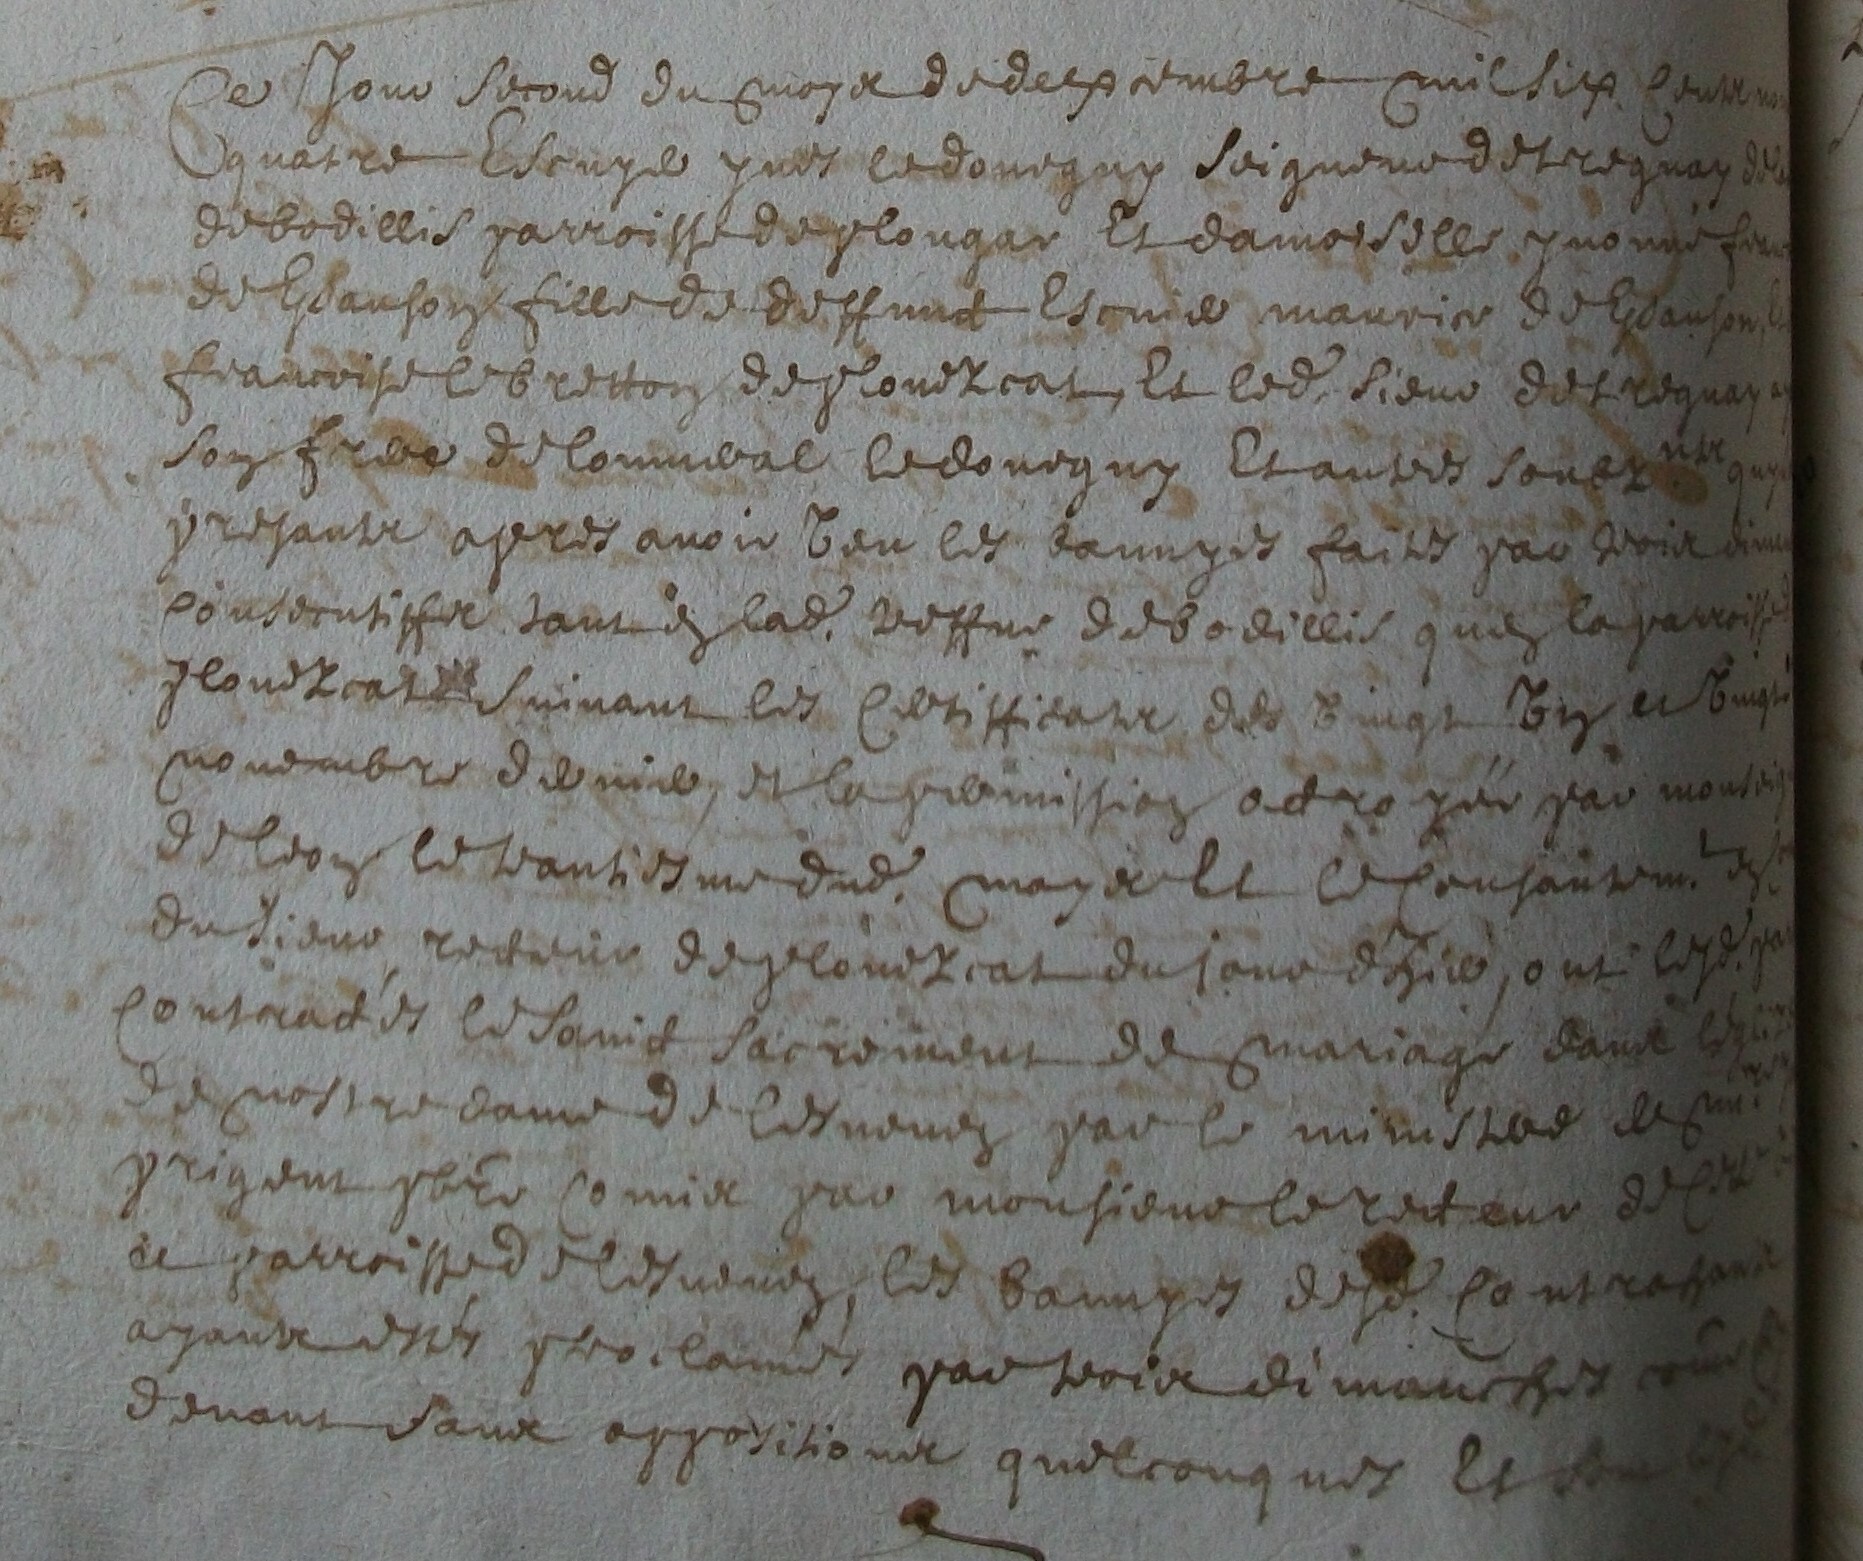 Ce Jour second du moys de dexcembre mil six centz
quatre Escuyer yves le doueguy seigneur de treguay
de bodillis parroisse de plougar Et damoiselle yvonne
de Kdanson fille de deffunct Escuier maurice de Kdanson
francoise le bretton de plouezcat, Et led. sieur de treguay
son frere de loumeral le doueguy Et autres soubz
presantz apres avoir veu les bannyes faites par trois
consecutiffz tant en lad. treffve de bodillis qu'en la parroisse
plouezcat suivant les certifficatz des vingt un et vingt
novembre dernier, et la permission octroyée par
de leon le trantiesme dud. moys Et le consantem.t
du sieur recteur de plouezcat du jour d'hier, ont lesd.
contractés le sainct sacrement de mariage dans
de nostre dame de lesneven par le ministere de
prigent pbre comis par monsieur le recteur de
et parroisse de lesneven, les bannyes desd. contractans
ayantz estés proclamés par trois dimanches
devant sans oppositions quelconques Et